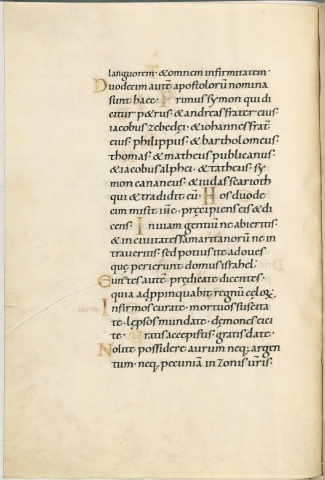 languorem· & omnem infirmitatem·
Duodecim autē apostolorū nomina
sunt haec· Primus symon qui di
citur pętrus· & andreas frater eius·
iacobus zebedei· & iohannes frat̄
eius· philippus· & bartholomeus·
thomas· & matheus publicanus·
& iacobus alphei· & tatheus· sy
mon cananeus· & iudas scarioth
qui & tradidit eū· Hos duode
cim misit ih̄c· pręcipiens eis & di
cens· In uiam gentiū ne abieritis·
& in ciuitates samaritanorū ne in
traueritis· sed potius ite ad oues
quę perierunt domus israhel·
Euntes autē prędicate dicentes·
quia adp̄pinquabit regnū cęloꝝ·
Infirmos curate· mortuos suscita
te· leprosos mundate· demones eici
te· Gratis accepistis· gratis date·
Nolite possidere aurum neq; argen
tum· neq; pecuniā in zonis uris·